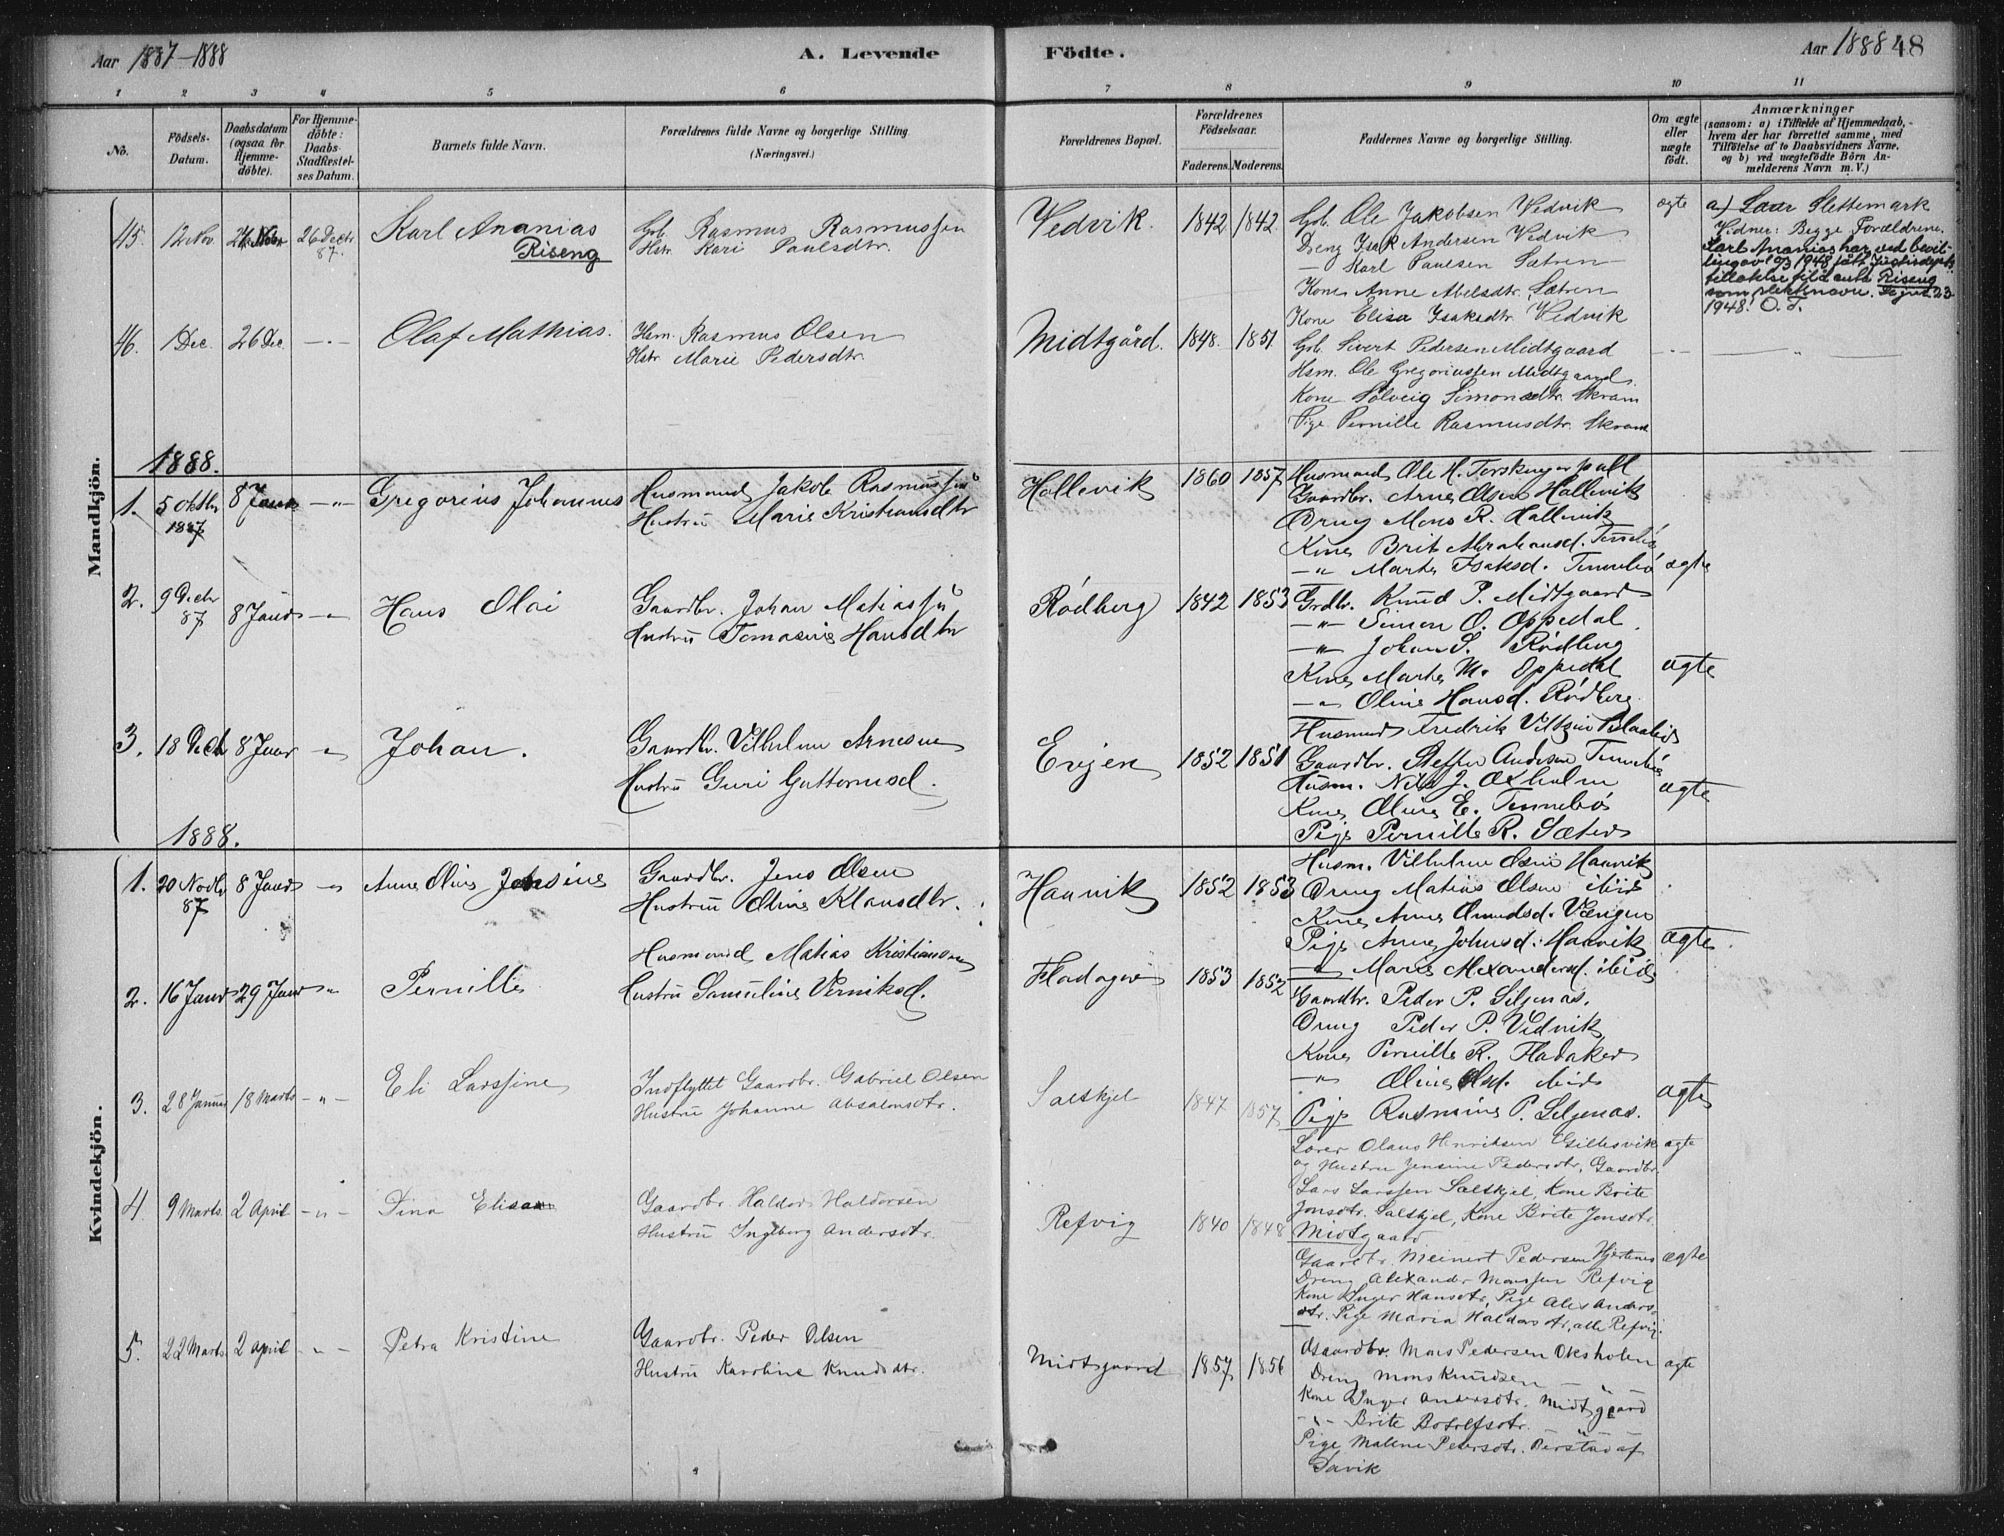 Aar 1887-1888
A. Levende
Födte.
Aar 1888
48
1 2 3 4 5 6 7 8 9 10 11
No.
Födsels-
Datum.
Daabsdatum
(ogsaa for
Hjemme-
döbte).
For Hjemme-
döbte:
Daabs-
Stadfæstel-
ses Datum.
Barnets fulde Navn.
Forældrenes fulde Navne og borgerlige Stilling.
(Næringsvei.)
Forældrenes Bopæl.
Forældrenes
Födselsaar.
Faderens. Moderens.
Faddernes Navne og borgerlige Stilling.
Om ægte
eller
uægte
födt.
Anmærkninger
(saasom: a) i Tilfælde af Hjemmedaab,
hvem der har forrettet samme, med
Tilföielse af to Daabsvidners Navne,
og b) ved uægtefödte Börn An-
melderens Navn m.V.)
Mandkjön.
45. 12 Nov. 26 Decbr 87. Karl Ananias
Riseng
Gb. Rasmus Rasmussen
Hstr. Kari Paulsdtr.
Vedvik. 1842 1842.
Gb. Ole Jakobsen Vedvik
Dreng Isak Andersen Vedvik
— Karl Paulsen Sætren
Kone Anne Abelsdtr. Sætren
Kone Elisa Isaksdtr. Vedvik
ægte
a) Lars Slettemark
Vidner: Begge Forældrene.
Karl Ananias har ved bevil-
Riseng
som slektsnavn.
1948. O. F.
46. 1 Dec. 26 Dec. —"— Olaf Mathias.
Hsm. Rasmus Olsen
Hstr. Marie Pedersdtr.
Midtgård. 1848. 1851.
Gb. Sivert Pedersen Midtgaard
Hsm. Ole Gregoriussen Midtgaard.
Kone Sølveig Simonsdtr. Skram
Pige Pernille Rasmusdtr. Skram
—"—
1888.
1. 5 Oktbr 1887 8 Januar —"— Gregorius Johannes
Husmand Jakob Rasmussen
Hustru Marie Kristiansdtr
Hallevik 1860 1857
Gaardbr. Arne Olsen Hallevik
Dreng Mons R. Hallevik
Kone Brite Abrahamsd. Tennebø
—"— Marte Isaksd. Tennebø
ægte
2. 9 Decbr 87 8 Januar —"— Hans Olai
Gaardbr. Johan Matiassen
Hustru Tomasine Hansdtr
Rødberg 1842 1853
Grdbr. Knud P. Midtgaard
—"— Simon O. Oppedal.
—"— Johan S. Rødberg
Kone Marte M. Oppedal
—"— Oline Hansd. Rødberg.
ægte
3. 18 Decbr 8 Januar —"— Johan.
Gaardbr. Vilhelm Arnesen
Hustru Guri Guttormsd.
Evjen 1852 1851
Gaardbr. Steffen Andersen Tennebø
Husm. Nils J. Oxholm
Kone Oline E. Tennebø
Pige Pernille R. Sæter
ægte
1888.
Kvindekjön.
1. 20 Novbr 87 8 Januar —"— Anne Oline Jensine
Gaardbr. Jens Olsen
Hustru Oline Klausdtr.
Haavik 1852 1853
Husm. Vilhelm Olsen Haavik
Dreng Matias Olsen ibid.
Kone Anne Amundsd. Vængen
Pige Anne Johnsd. Haavik
—"— Marie Alexandersd. ibid.
ægte
2. 16 Januar 29 Januar —"— Pernille
Husmand Matias Kristiansen
Hustru Samuline Verniksd.
1853 1852
Gaardbr. Peder P. Silgenæs.
Dreng Peder P. Vedvik
Kone Pernille R. Fladaker
—"— Oline Olsd. ibid.
Pige Rasmine P. Silgenæs.
ægte
3. 28 Januar 18 Marts —"— Eli Larssine
Indflyttet Gaardbr. Gabriel Olsen
Hustru Johanne Absalonsdtr.
Salskjel 1847 1857
Lærer Olaus Henriksen Gillesvik
og Hustru Jensine Pedersdtr, Gaardbr.
Lars Larssen Salskjel, Kone Brite
Jonsdtr. Salskjel, Kone Brite Jonsdtr.
Midtgaard
ægte
4. 9 Marts 2 April —"— Dina
Gaardbr. Haldor Haldorsen
Hustru Ingeborg Andersdtr.
Refvig 1840 1848
Gaardbr. Meinert Pedersen Hjertenes
Dreng Alexander Monssen Refvig
Kone Inger Hansdtr, Pige
Pige Maria Haldorsdtr, alle Refvig.
ægte
5. 22 Marts 2 April —"— Petra Kristine
Gaardbr. Peder Olsen
Hustru Karoline Knudsdtr.
Midtgaard 1857 1856
Gaardbr. Mons Pedersen Oksholen
Dreng Mons Knudsen —"—
Kone Inger Andersdtr. Midtgaard
—"— Brite Botolfsdtr. "
Pige Malene Pedersdtr.
Davik
ægte